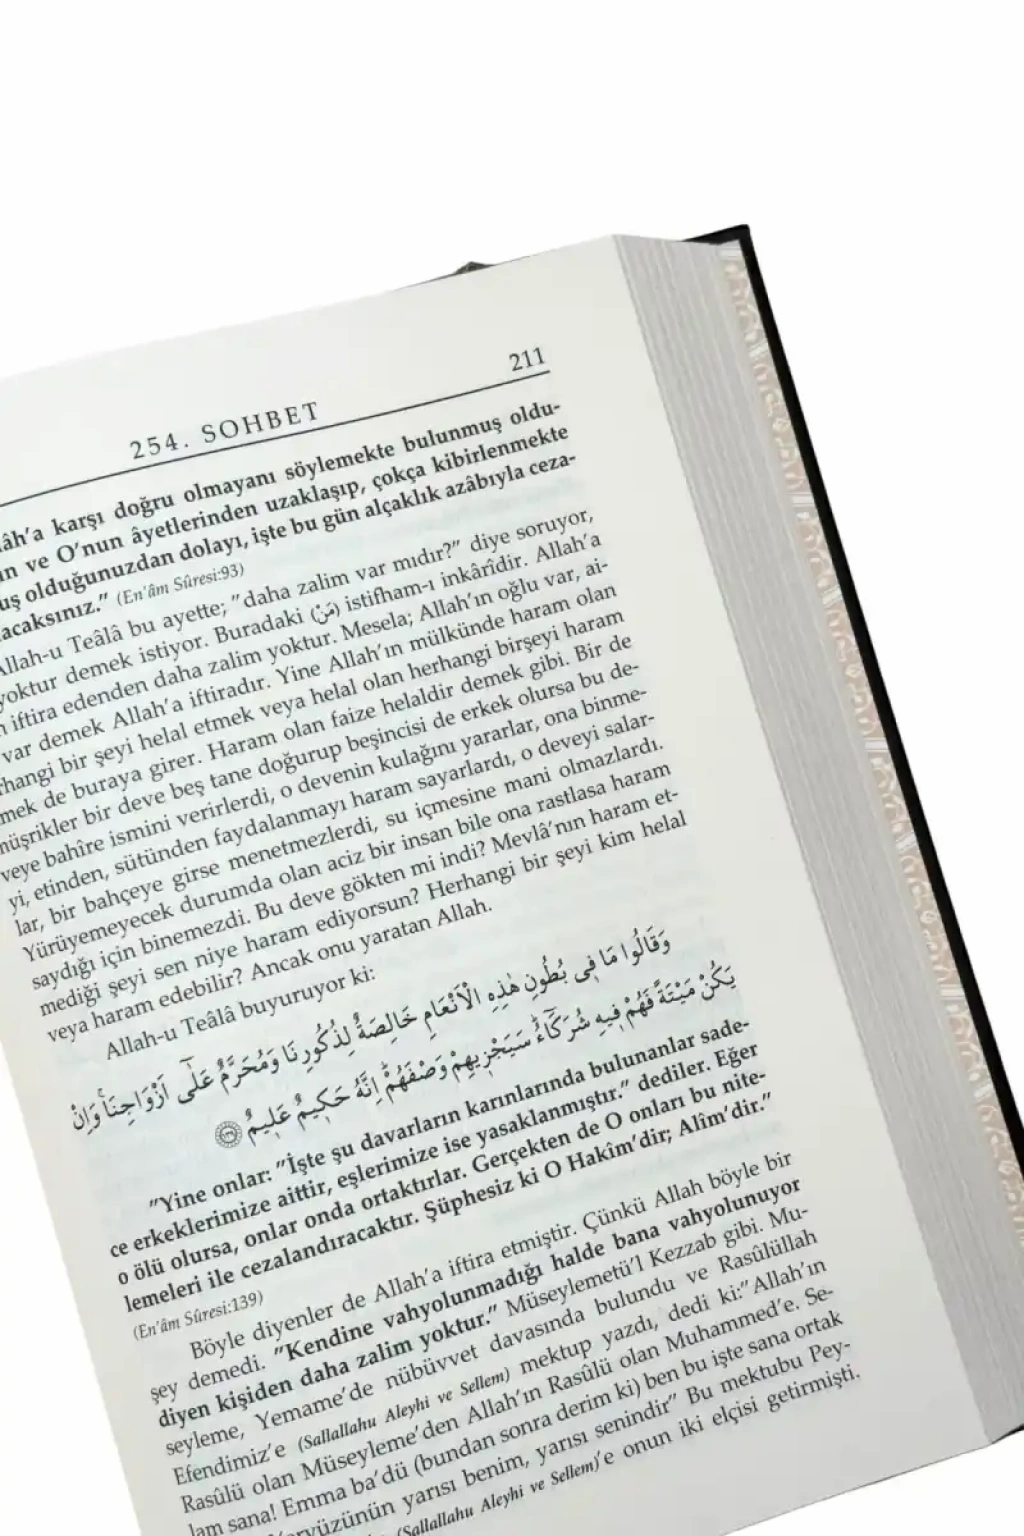 211
254. SOHBET
âh'a karşı doğru olmayanı söylemekte bulunmuş oldu-
n ve O'nun âyetlerinden uzaklaşıp, çokça kibirlenmekte
uş olduğunuzdan dolayı, işte bu gün alçaklık azâbıyla ceza-
acaksınız." (En'âm Sûresi:93)
Allah-u Teâlâ bu ayette; "daha zalim var mıdır?" diye soruyor,
yoktur demek istiyor. Buradaki (مَنْ) istifham-ı inkârîdir. Allah'a
iftira edenden daha zalim yoktur. Mesela; Allah'ın oğlu var, ai-
var demek Allah'a iftiradır. Yine Allah'ın mülkünde haram olan
rhangi bir şeyi helal etmek veya helal olan herhangi birşeyi haram
mek de buraya girer. Haram olan faize helaldir demek gibi. Bir de
müşrikler bir deve beş tane doğurup beşincisi de erkek olursa bu de-
veye bahîre ismini verirlerdi, o devenin kulağını yararlar, ona binme-
yi, etinden, sütünden faydalanmayı haram sayarlardı, o deveyi salar-
lar, bir bahçeye girse menetmezlerdi, su içmesine mani olmazlardı.
Yürüyemeyecek durumda olan aciz bir insan bile ona rastlasa haram
saydığı için binemezdi. Bu deve gökten mi indi? Mevlâ'nın haram et-
mediği şeyi sen niye haram ediyorsun? Herhangi bir şeyi kim helal
veya haram edebilir? Ancak onu yaratan Allah.
Allah-u Teâlâ buyuruyor ki:
وَقَالُوا مَا فٖى بُطُونِ هٰذِهِ الْاَنْعَامِ خَالِصَةٌ لِذُكُورِنَا وَمُحَرَّمٌ عَلٰٓى اَزْوَاجِنَاۚ وَاِنْ
يَكُنْ مَيْتَةً فَهُمْ فٖيهِ شُرَكَٓاءُۜ سَيَجْزٖيهِمْ وَصْفَهُمْۜ اِنَّهُ حَكٖيمٌ عَلٖيمٌ ﴿١٣٩﴾
"Yine onlar: "İşte şu davarların karınlarında bulunanlar sade-
ce erkeklerimize aittir, eşlerimize ise yasaklanmıştır." dediler. Eğer
o ölü olursa, onlar onda ortaktırlar. Gerçekten de O onları bu nite-
lemeleri ile cezalandıracaktır. Şüphesiz ki O Hakîm'dir; Alîm'dir."
(En'âm Sûresi:139)
Böyle diyenler de Allah'a iftira etmiştir. Çünkü Allah böyle bir
şey demedi. "Kendine vahyolunmadığı halde bana vahyolunuyor
diyen kişiden daha zalim yoktur." Müseylemetü'l Kezzab gibi. Mu-
seyleme, Yemame'de nübüvvet davasında bulundu ve Rasûlüllah
Efendimiz'e (Sallallahu Aleyhi ve Sellem) mektup yazdı, dedi ki:"Allah'ın
Rasûlü olan Müseyleme'den Allah'ın Rasûlü olan Muhammed'e. Se-
lam sana! Emma ba'dü (bundan sonra derim ki) ben bu işte sana ortak
yarısı benim, yarısı senindir" Bu mektubu Pey-
(Sallallahu Aleyhi ve Sellem)'e onun iki elçisi getirmişti.